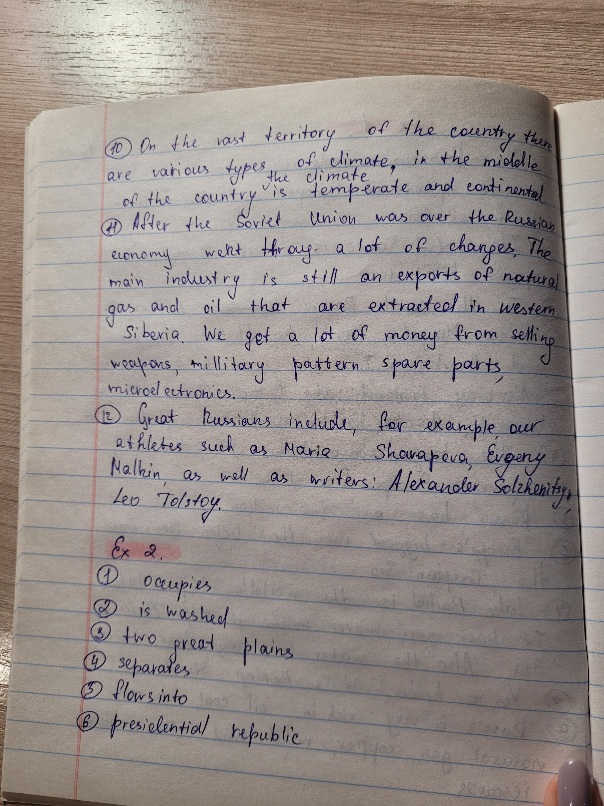 10 On the vast territory of the country there
are various types of climate, in the middle
the climate
of the country is temperate and continental
11 After the Soviet Union was over the Russian
economy went throug. a lot of changes. The
main industry is still an exports of natural
gas and oil that are extracted in western
Siberia. We get a lot of money from selling
weapons, millitary pattern spare parts,
microelectronics.
12 Great Russians include, for example, our
athletes such as Maria Sharapova, Evgeny
Malkin, as well as writers: Alexander Solzhenitsyn,
Leo Tolstoy.
Ex 2.
1 occupies
2 is washed
3 two great plains
4 separates
5 flows into
6 presidential republic